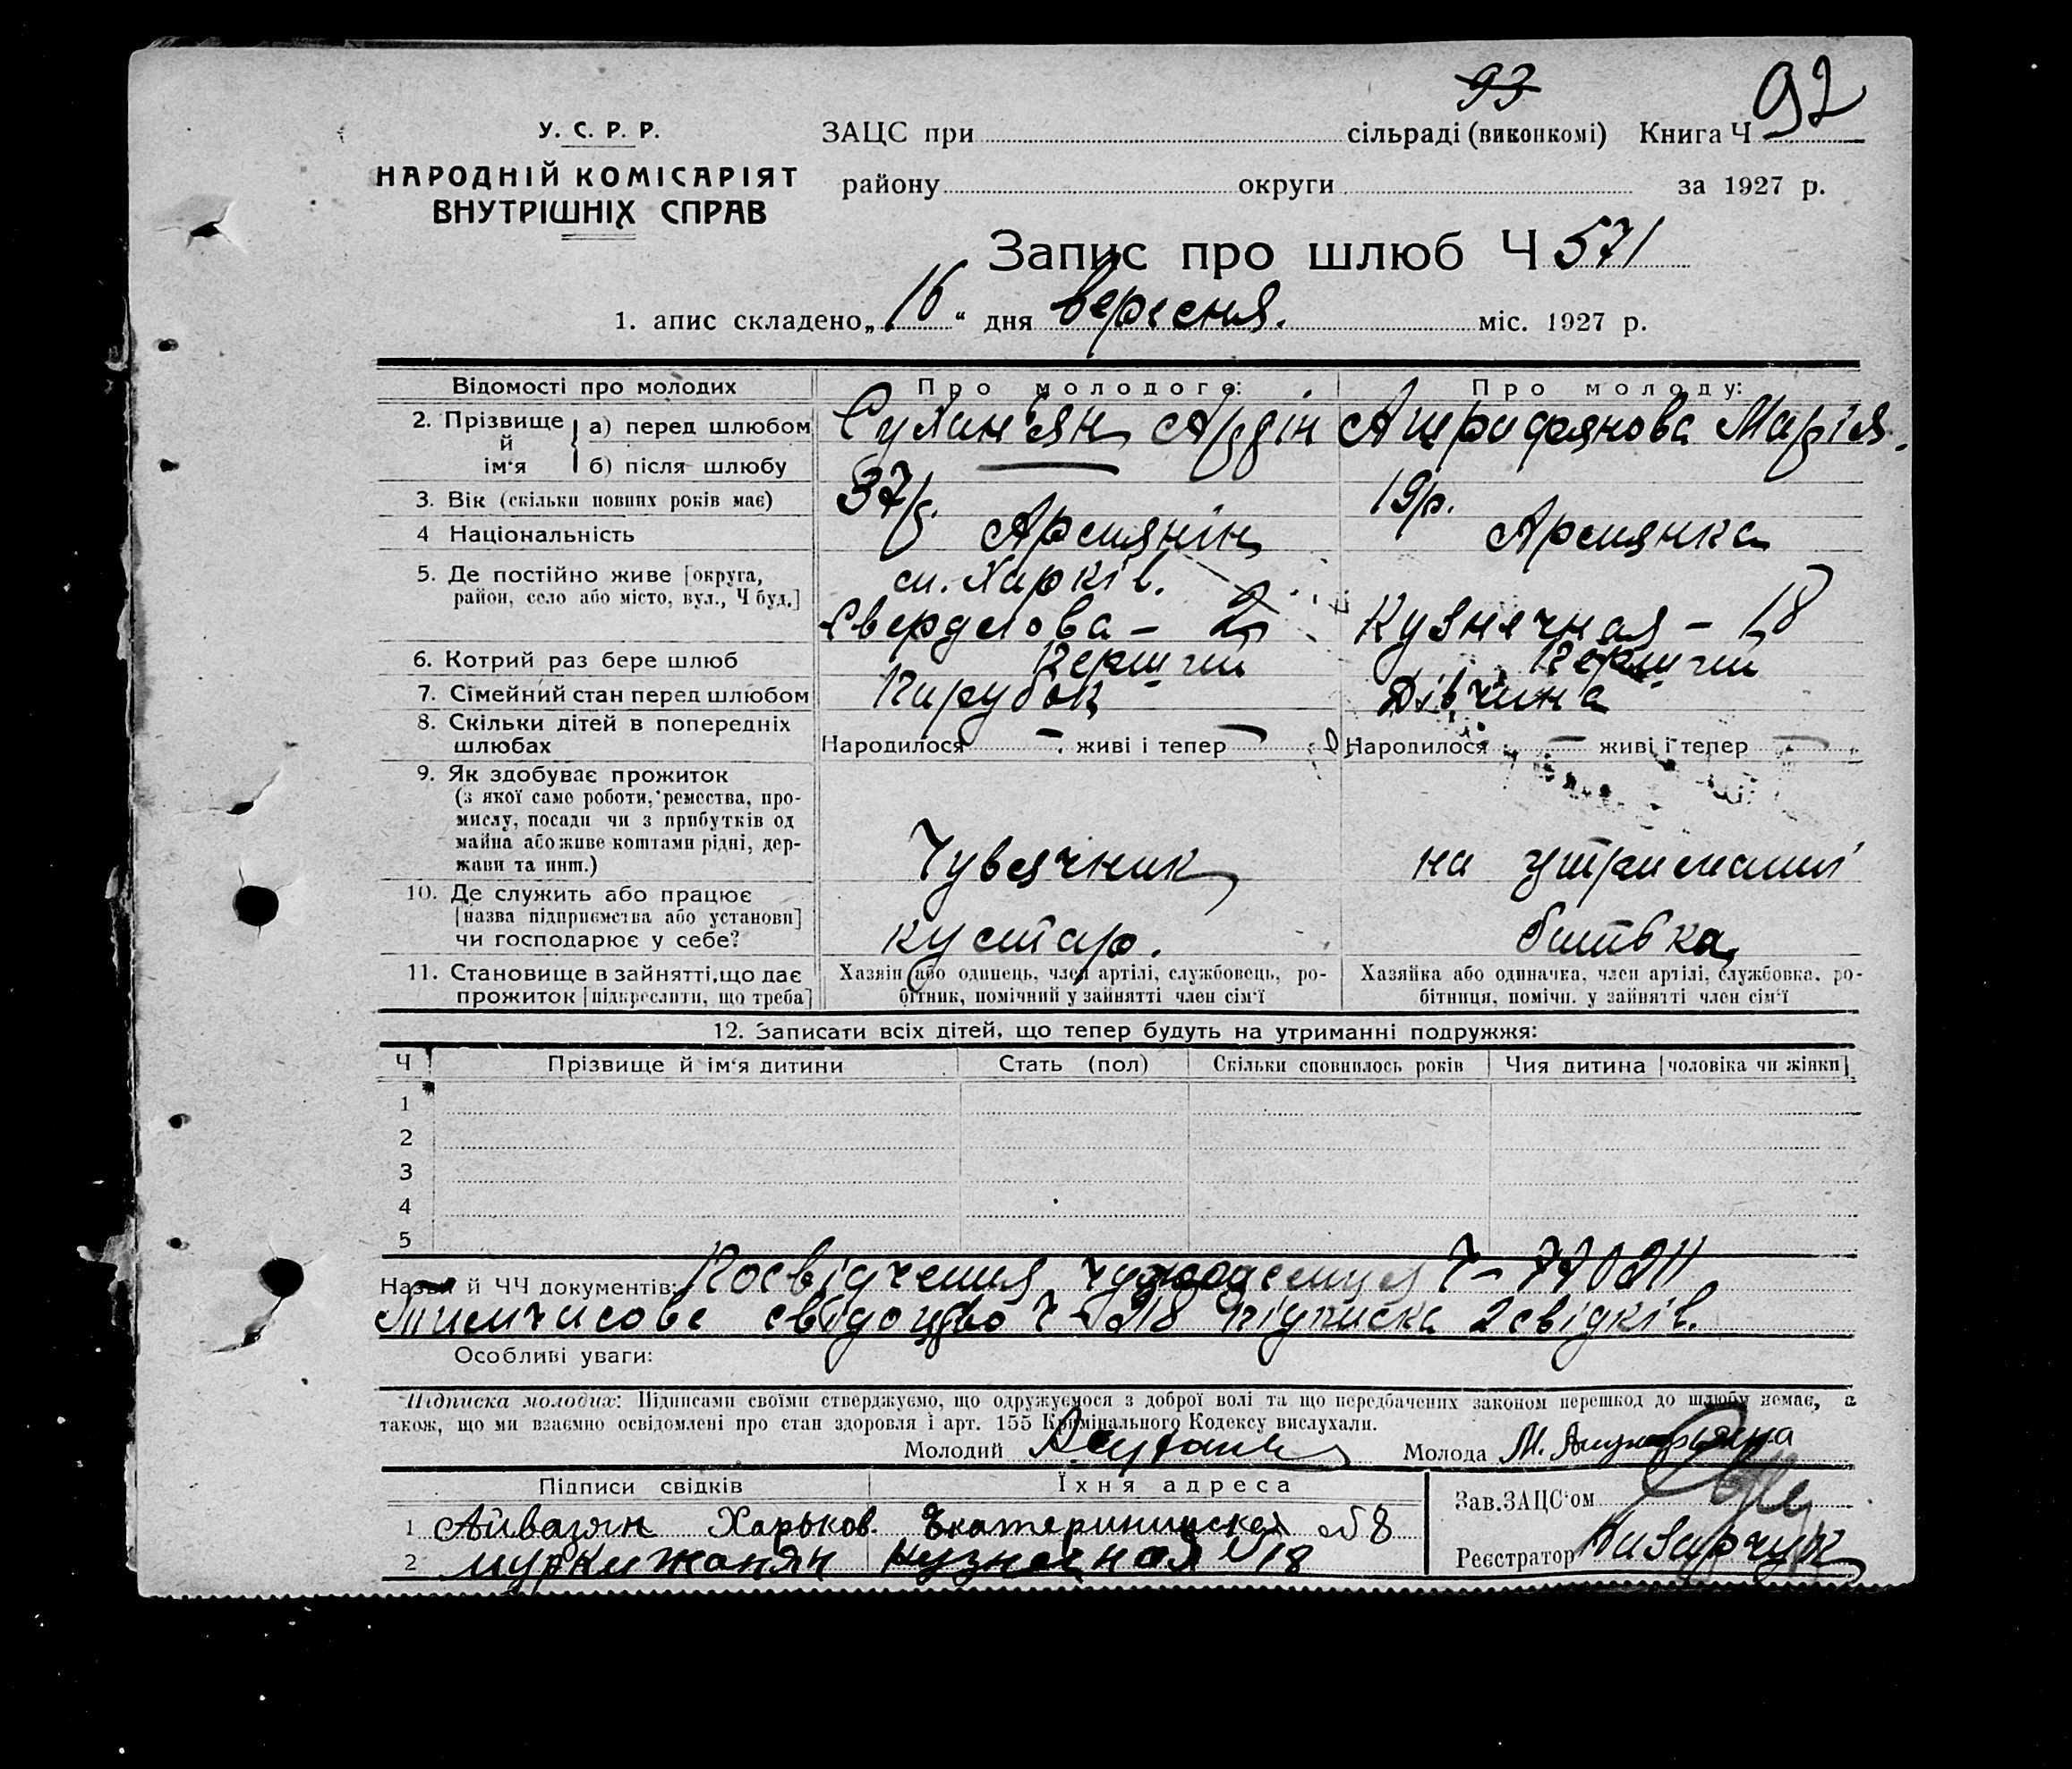 93
92
У. С. Р. Р.
НАРОДНІЙ КОМІСАРІЯТ
ВНУТРІШНІХ СПРАВ
ЗАЦС при сільраді (виконкомі) Книга Ч
району округи за 1927 р.
Запис про шлюб Ч 571
1. апис складено „16“ дня вересня. міс. 1927 р.
Відомості про молодих Про молодого: Про молоду:
2. Прізвище й ім'я а) перед шлюбом б) після шлюбу
Марія.
3. Вік (скільки повних років має) 37 р. 19 р.
4 Національність Армянін Армянка
5. Де постійно живе [округа, район, село або місто, вул., Ч буд.]
м. Харків.
Свердлова – Кузнечная – 18
6. Котрий раз бере шлюб перший перший
7. Сімейний стан перед шлюбом Парубок Дівчина
8. Скільки дітей в попередніх шлюбах
Народилося – живі і тепер – Народилося – живі і тепер –
9. Як здобуває прожиток
(з якої саме роботи, ремества, про-
мислу, посади чи з прибутків од
майна або живе коштами рідні, дер-
жави та инш.)
Чувячник на утриманні
10. Де служить або працює
[назва підприємства або установи]
чи господарює у себе?
кустар. батька
11. Становище в зайнятті, що дає
прожиток [підкреслити, що треба]
Хазяін або одинець, член артілі, службовець, ро-
бітник, помічний у зайнятті член сім'ї
Хазяйка або одиначка, член артілі, службовка, ро-
бітниця, помічн. у зайнятті член сім'ї
12. Записати всіх дітей, що тепер будуть на утриманні подружжя:
Ч Прізвище й ім'я дитини Стать (пол) Скільки сповнилось років Чия дитина [чоловіка чи жінки]
1
2
3
4
5
Назви й ЧЧ документів: Посвідчення чужоземця Ч –
Тимчасове свідоцтво Ч – 218 підписка 2 свідків.
Особливі уваги:
Підписка молодих: Підписами своїми стверджуємо, що одружуємося з доброї волі та що передбачених законом перешкод до шлюбу немає, а
також, що ми взаємно освідомлені про стан здоровля і арт. 155 Кримінального Кодексу вислухали.
Молодий Молода М.
Підписи свідків Їхня адреса
1 Айвазян Харьков. Екатерининская 8
2 Кузнечная 18
Зав. ЗАЦС'ом
Реєстратор